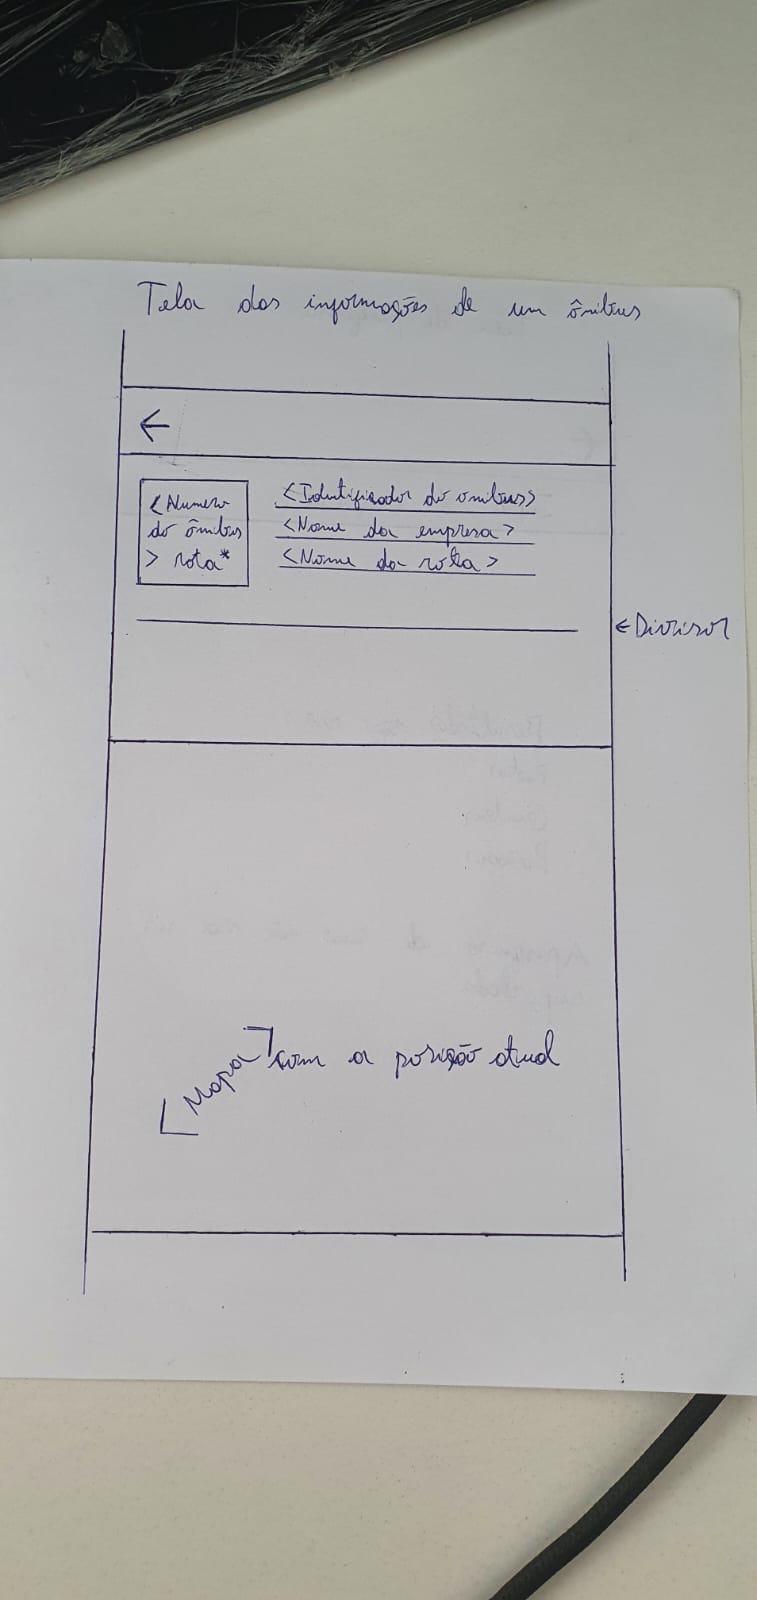 Tela das informações de um ônibus
←
<Numero
do ônibus
> rota*
<Identificador do onibus>
<Nome da empresa>
<Nome da rota>
← Divisor
[Mapa] com a posição atual